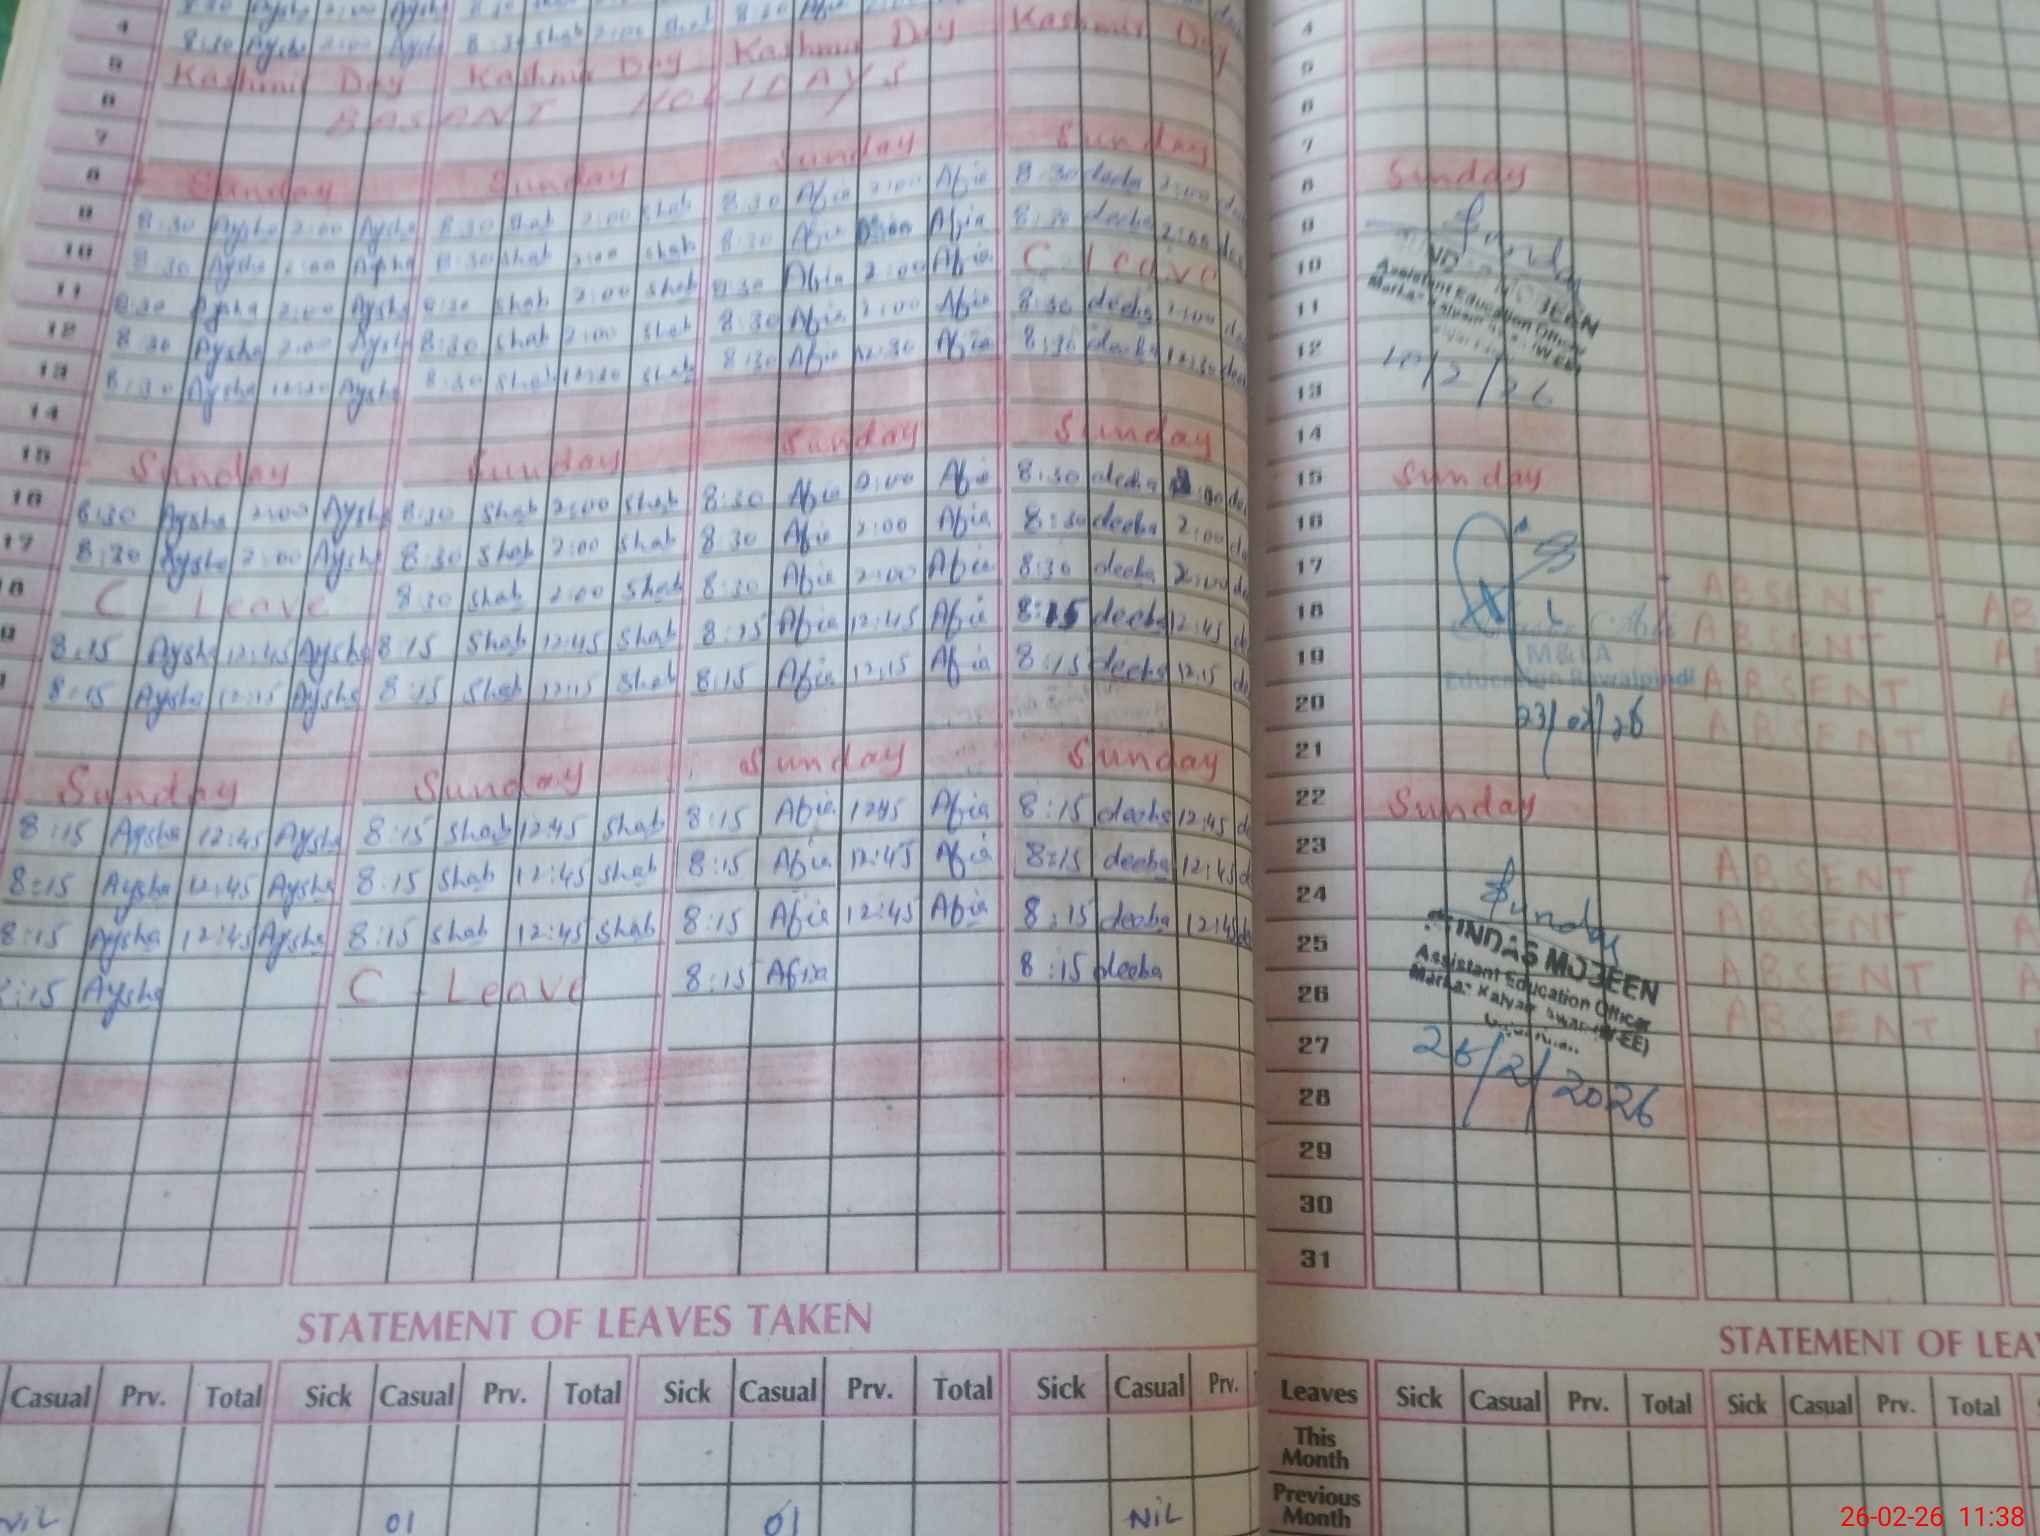 4 8:30 Aysha 2:00 Aysha 8:30 Shab 2:00 Shab
5 Kashmir Day Kashmir Day Kashmir Day Kashmir Day
6 BASANT HOLIDAYS
7
8 Sunday Sunday Sunday Sunday
9 8:30 Aysha 2:00 Aysha 8:30 Shab 2:00 Shab 8:30 Afia 2:00 Afia 8:30 deeba 2:00
10 8:30 Aysha 2:00 Aysha 8:30 Shab 2:00 Shab 8:30 Afia 2:00 Afia 8:30 deeba 2:00
11 8:30 Aysha 2:00 Aysha 8:30 Shab 2:00 Shab 8:30 Afia 2:00 Afia C. Leave
12 8:30 Aysha 2:00 Aysha 8:30 Shab 2:00 Shab 8:30 Afia 2:00 Afia 8:30 deeba 2:00
13 8:30 Aysha 12:30 Aysha 8:30 Shab 12:30 Shab 8:30 Afia 12:30 Afia 8:30 deeba 12:30
14
15 Sunday Sunday Sunday Sunday
16 8:30 Aysha 2:00 Aysha 8:30 Shab 2:00 Shab 8:30 Afia 2:00 Afia 8:30 deeba
17 8:30 Aysha 2:00 Aysha 8:30 Shab 2:00 Shab 8:30 Afia 2:00 Afia 8:30 deeba 2:00
18 C - Leave 8:30 Shab 2:00 Shab 8:30 Afia 2:00 Afia 8:30 deeba 2:00
8:15 Aysha 12:45 Aysha 8:15 Shab 12:45 Shab 8:15 Afia 12:45 Afia 8:15 deeba 12:45
8:15 Aysha 12:15 Aysha 8:15 Shab 12:15 Shab 8:15 Afia 12:15 Afia 8:15 deeba 12:15
Sunday Sunday Sunday Sunday
8:15 Aysha 12:45 Aysha 8:15 Shab 12:45 Shab 8:15 Afia 1245 Afia 8:15 deeba 12:45
8:15 Aysha 12:45 Aysha 8:15 Shab 12:45 Shab 8:15 Afia 12:45 Afia 8:15 deeba 12:45
8:15 Aysha 12:45 Aysha 8:15 Shab 12:45 Shab 8:15 Afia 12:45 Afia 8:15 deeba 12:45
8:15 Aysha C - Leave 8:15 Afia 8:15 deeba
STATEMENT OF LEAVES TAKEN
Casual Prv. Total Sick Casual Prv. Total Sick Casual Prv. Total Sick Casual Prv.
NiL 01 01 NiL
4
5
6
7
8 Sunday
9
10
11 Assistant Education Officer
12
13 10/2/26
14
15 Sunday
16
17 ABSENT
18 ABSENT
M&EA
19 ABSENT
Education Rawalpindi
20 23/02/26 ABSENT
21
22 Sunday
23 ABSENT
24 ABSENT
MOBEEN
25 Assistant Education Officer ABSENT
26 ABSENT
27 26/2/2026
28
29
30
31
STATEMENT OF LEA
Leaves Sick Casual Prv. Total Sick Casual Prv. Total
This Month
Previous Month
26-02-26 11:38